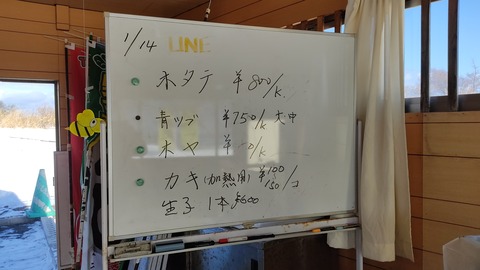 1/14 LINE
ホタテ ¥800/K
青ツブ ¥750/K 大中
ホヤ ¥ 0/K
カキ(加熱用) ¥100 150/コ
生子 1本 ¥600